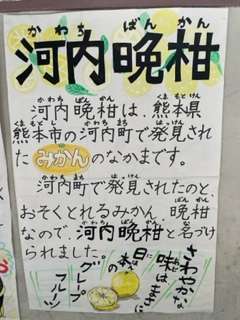 かわち ばんかん
河内晩柑
かわち ばんかん くまもとけん
河内晩柑は、熊本県
くまもとし かわちまち はっけん
熊本市の河内町で発見され
たみかんのなかまです。
かわちまち はっけん
河内町で発見されたのと、
おそくとれるみかん、晩柑
なので、河内晩柑と名づけ
られました。
さわやかな
味はまさに
日本の
グレープ
フルーツ